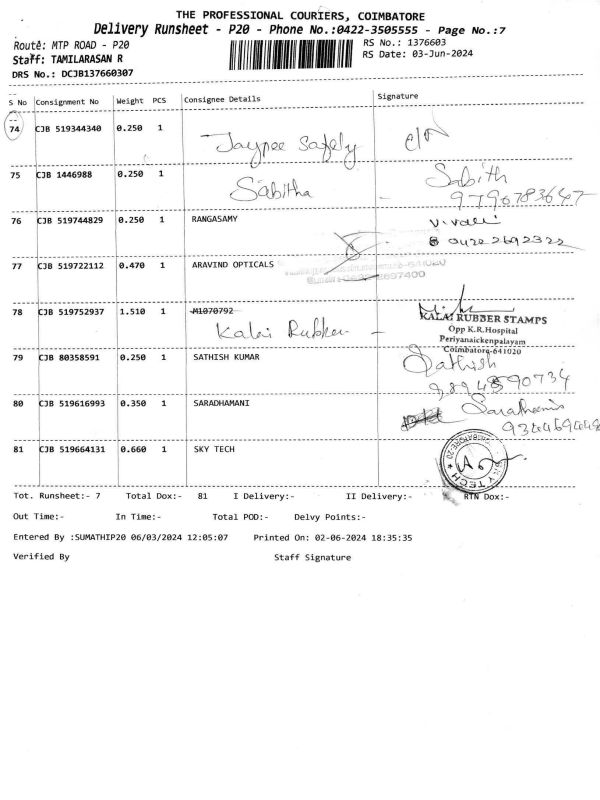 THE PROFESSIONAL COURIERS, COIMBATORE
Delivery Runsheet - P20 - Phone No.:0422-3505555 - Page No.:7
Route: MTP ROAD - P20
RS No.: 1376603
Staff: TAMILARASAN R
RS Date: 03-Jun-2024
DRS No.: DCJB137660307
S No Consignment No Weight PCS Consignee Details Signature
74 CJB 519344340 0.250 1 Jaypee Safety
75 CJB 1446988 0.250 1 Sabitha - Sabith
9790783647
76 CJB 519744829 0.250 1 RANGASAMY
0422 2692322
77 CJB 519722112 0.470 1 ARAVIND OPTICALS
78 CJB 519752937 1.510 1 M1070792
Kalai Rubber -
KALAI RUBBER STAMPS
Opp K.R.Hospital
Periyanaickenpalayam
Coimbatore-641020
79 CJB 80358591 0.250 1 SATHISH KUMAR Sathish
9894590734
80 CJB 519616993 0.350 1 SARADHAMANI
81 CJB 519664131 0.660 1 SKY TECH
SKY TECH
COIMBATORE-20
Tot. Runsheet:- 7 Total Dox:- 81 I Delivery:- II Delivery:- RTN Dox:-
Out Time:- In Time:- Total POD:- Delvy Points:-
Entered By :SUMATHIP20 06/03/2024 12:05:07 Printed On: 02-06-2024 18:35:35
Verified By Staff Signature